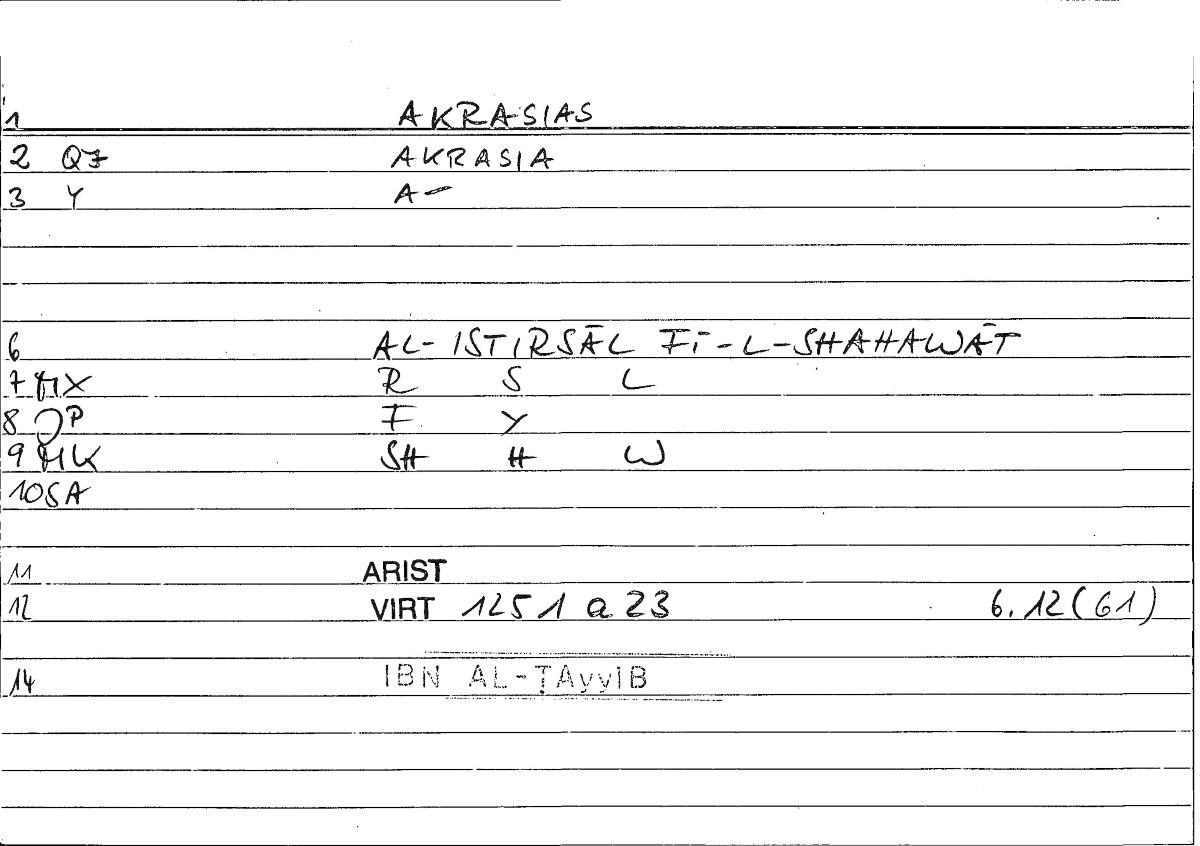 1 AKRASIAS
2 QZ AKRASIA
3 Y A-
6 AL-ISTIRSĀL FĪ-L-SHAHAWĀT
7 MX R S L
8 JP F Y
9 MK SH H W
10 SA
11 ARIST
12 VIRT 1251 a 23 6.12(61)
14 IBN AL-ṬAyyIB